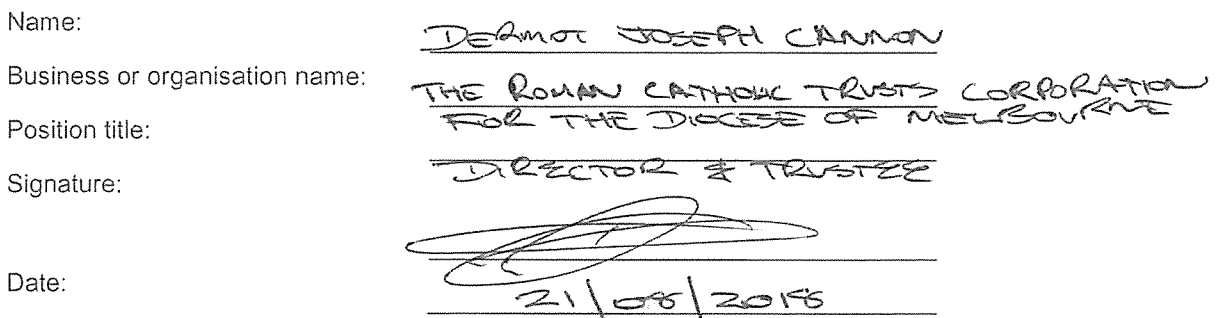 Name: DERMOT JOSEPH CANNON
Business or organisation name: THE ROMAN CATHOLIC TRUSTS CORPORATION
FOR THE DIOCESE OF MELBOURNE
Position title: DIRECTOR & TRUSTEE
Signature:
Date: 21/08/2018